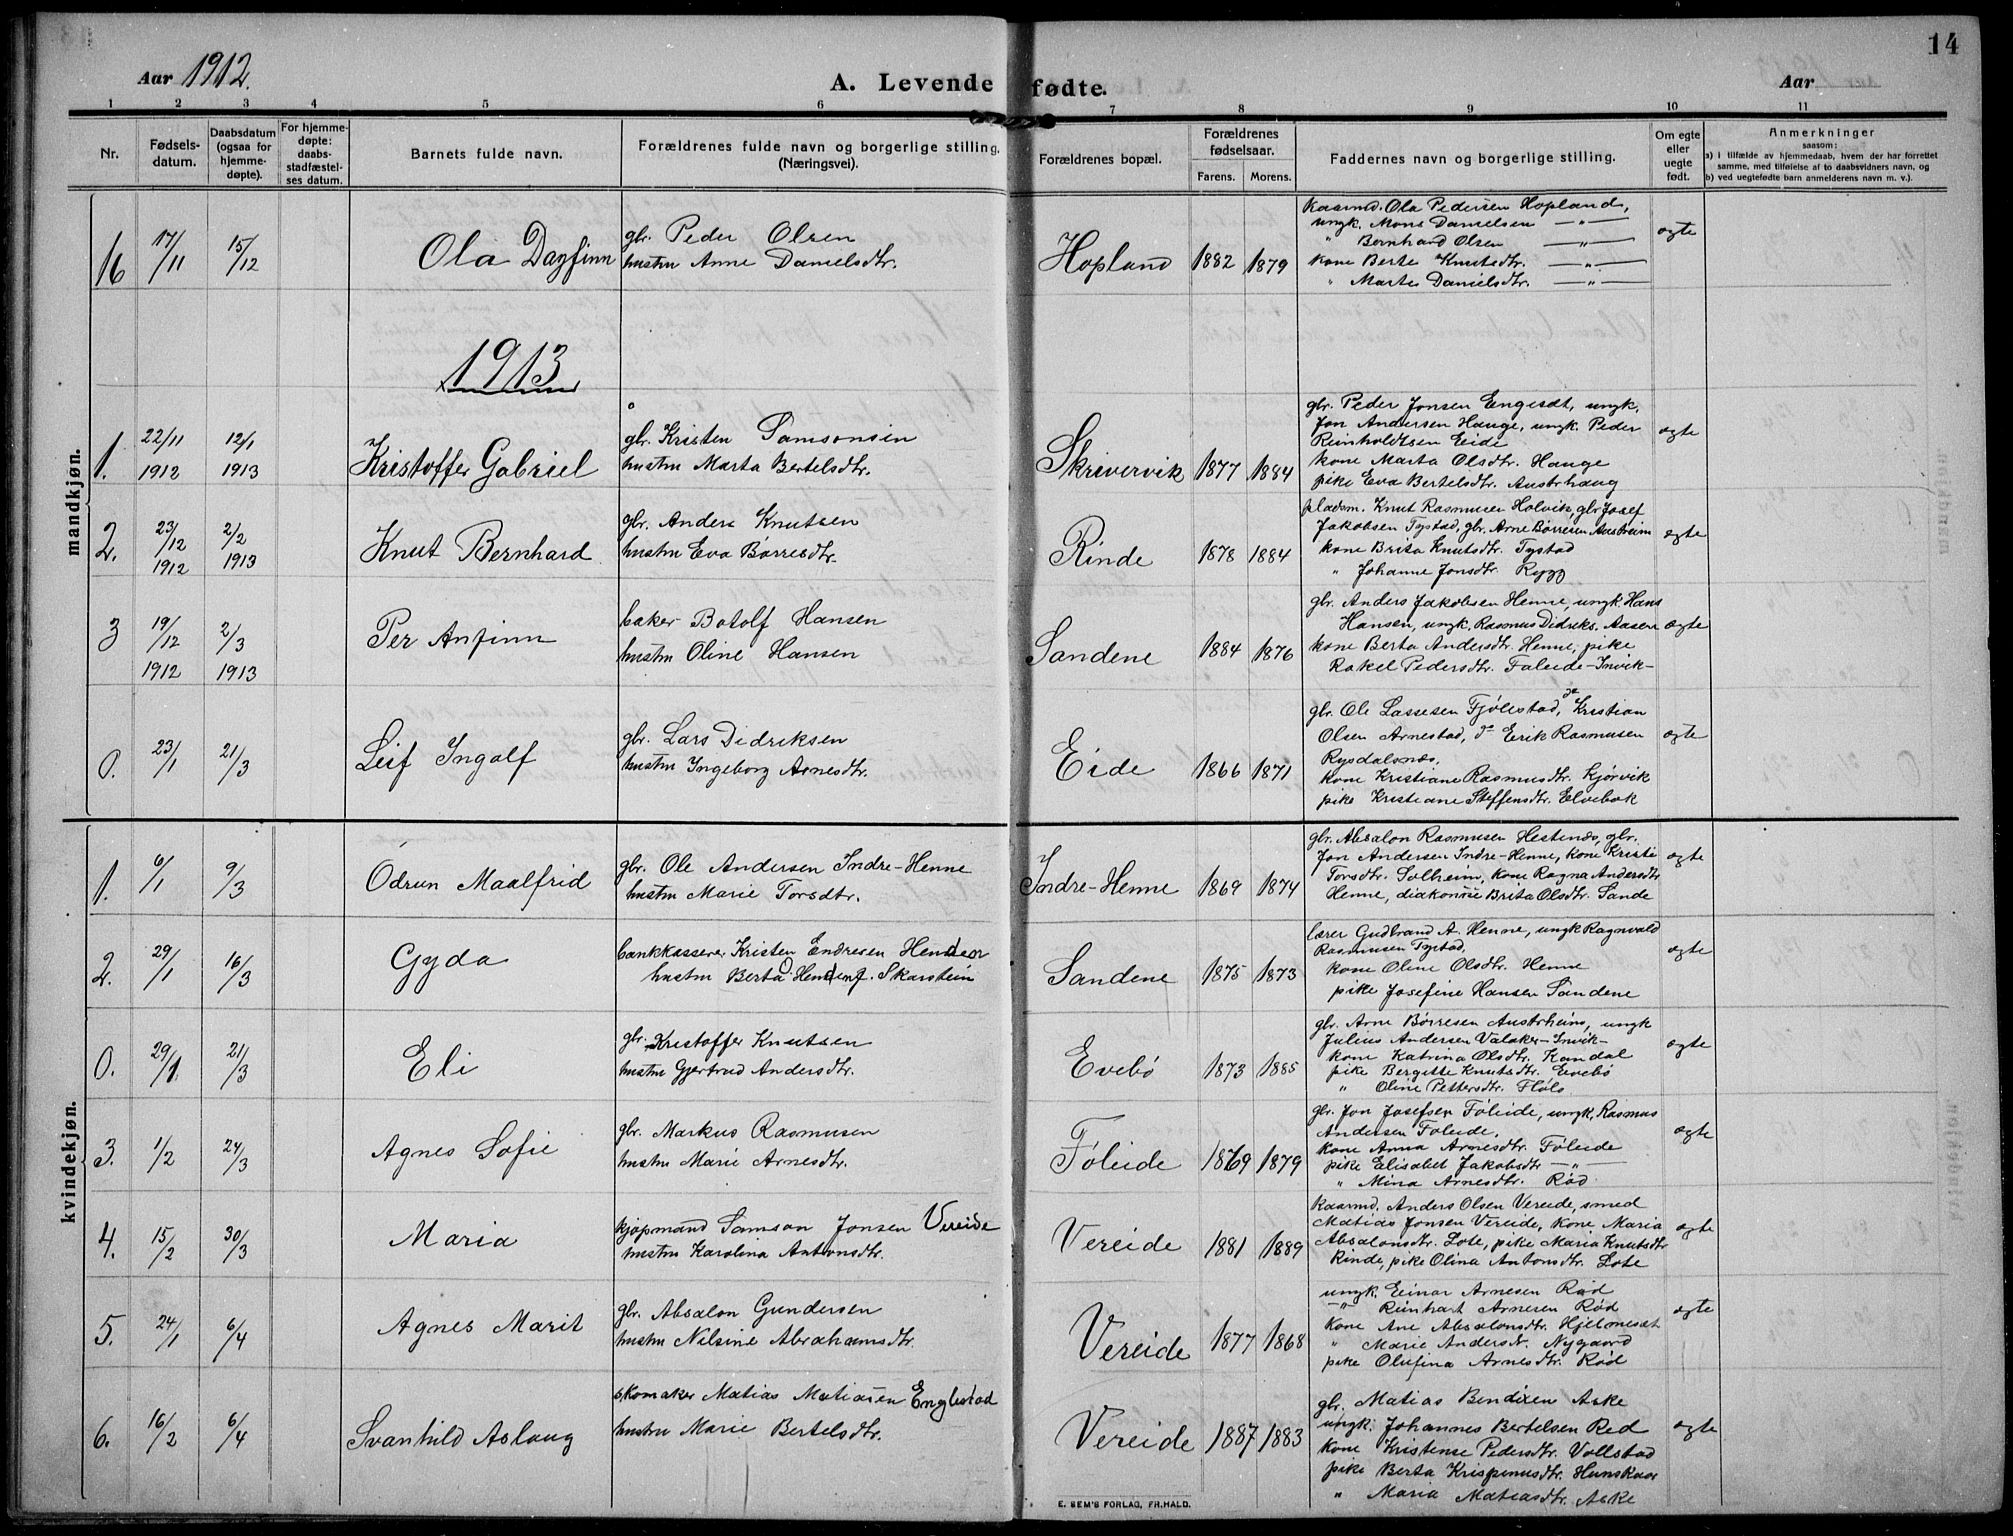 Aar 1912.
A. Levende fødte.
Aar
14
1 2 3 4 5 6 7 8 9 10 11
Nr.
Fødsels-
datum.
Daabsdatum
(ogsaa for
hjemme-
døpte).
For hjemme-
døpte:
daabs-
stadfæstel-
ses datum.
Barnets fulde navn.
Forældrenes fulde navn og borgerlige stilling.
(Næringsvei).
Forældrenes bopæl.
Forældrenes
fødselsaar.
Farens. Morens.
Faddernes navn og borgerlige stilling.
Om egte
eller
uegte
født.
Anmerkninger
saasom:
a) i tilfælde av hjemmedaab, hvem der har forrettet
samme, med tilføielse af to daabsvidners navn, og
b) ved uegtefødte barn anmelderens navn m. v.).
mandkjøn.
16 17/11 15/12 Ola Dagfinn
gbr. Peder Olsen
hustru Anne Danielsdtr.
Hopland 1882 1879
Kaarmd. Ola Pedersen Hopland,
ungk. Mons Danielsen —"—
" Bernhard Olsen —"—
kone Berte Knutsdtr. —"—
" Marte Danielsdtr. —"—
egte
1913
1. 22/11 1912 12/1 1913 Kristoffer Gabriel
gbr. Kristen Samsonsen
hustru Marta Bertelsdtr.
Skrivervik 1877 1884
gbr. Peder Jonsen Engeset, ungk.
Jon Andersen Hauge, ungk. Peder
Reinholdtsen Eide
kone Marta Olsdtr. Hauge
pike Eva Bertelsdtr. Austrhaug
egte
2. 23/12 1912 2/2 1913 Knut Bernhard
gbr. Anders Knutsen
hustru Eva Børresdtr.
Rinde 1878 1884
pladsm. Knut Rasmusen Holvik, gbr Josef
Jakobsen Tystad, gbr. Arne Børresen Austrheim
kone Brita Knutsdtr. Tystad
" Johanne Jonsdtr. Rygg
egte
3 19/12 1912 2/3 1913 Per Anfinn
baker Botolf Hansen
hustru Oline Hansen
Sandene 1884 1876
gbr. Anders Jakobsen Henne, ungk. Hans
Hansen, ungk. Rasmus Didriks. Aasen
kone Berta Andersdtr. Henne, pike
Rakel Pedersdtr. Faleide-Invik-
egte
0. 23/1 21/3 Leif Ingolf
gbr. Lars Didriksen
hustru Ingeborg Arnesdtr.
Eide 1866 1871
gbr. Ole Lassesen Fjølestad, do Kristian
Olsen Arnestad, do Erik Rasmusen
Rysdalsnes,
kone Kristiane Rasmusdtr. Kjørvik
pike Kristiane Steffensdtr. Elvebak
egte
kvindekjøn.
1. 6/1 9/3 Odrun Maalfrid
gbr. Ole Andersen Indre-Henne
hustru Marie Torsdtr.
Indre-Henne 1869 1874
gbr. Absalon Rasmusen Hestenes, gbr.
Jon Andersen Indre-Henne, kone Kristi
Torsdtr. Solheim, kone Ragna Andersdtr
Henne, diakonisse Brita Olsdtr. Sande
egte
2. 29/1 16/3 Gyda
bankkasserer Kristen Endresen
hustru Berta f. Skarstein
Sandene 1875 1873
lærer Gudbrand A. Henne, ungk Ragnvald
Rasmusen Tystad,
kone Oline Olsdtr. Henne
pike Josefine Hansen Sandene
egte
0. 29/1 21/3 Eli
gbr. Kristoffer Knutsen
hustru Gjertrud Andersdtr.
Evebø 1873 1885
gbr. Arne Børresen Austrheim, ungk
Julius Andersen Valaker-Invik-
kone Katrina Olsdtr. Kandal
pike Bergitte Knutsdtr. Evebø
" Oline Pettersdtr. Fløls
egte
3. 1/2 24/3 Agnes Sofie
gbr. Markus Rasmusen
hustru Marie Arnesdtr.
Føleide 1869 1879
gbr. Jon Josefsen Føleide, ungk, Rasmus
Andersen Føleide,
kone Anna Arnesdtr. Føleide
pike Elisabet Jakobsdtr —"—
" Mina Arnesdtr. Rød
egte
4. 15/2 30/3 Maria
kjøpmand Samson Jonsen Vereide
hustru Karolina Antonsdtr.
Vereide 1881 1889
Kaarmd. Anders Olsen Vereide, smed
Matias Jonsen Vereide, kone Maria
Absalonsdtr. Lote, pike Maria Knutsdtr
Rinde, pike Olina Antonsdtr. Lote
egte
5. 24/1 6/4 Agnes Marit
gbr. Absalon Gundersen
hustru Nilsine Abrahamsdtr.
Vereide 1877 1868
ungk. Einar Arnesen Rød
—"— Reinhart Arnesen Rød
kone Ane Absalonsdtr. Hjelmeset
" Marie Andersdtr. Nygaard
pike Olufina Arnesdtr. Rød
egte
6. 16/2 6/4 Svanhild Aslaug
skomaker Matias Matiasen Englestad
hustru Marie Bertelsdtr.
Vereide 1887 1883
gbr. Matias Bendixen Aske
ungk. Johannes Bertelsen Red
kone Kristense Pedersdtr. Vollstad
pike Berta Krispinusdtr. Hunskaar
" Maria Matiasdtr. Aske
egte
E. SEM'S FORLAG, FR.HALD.